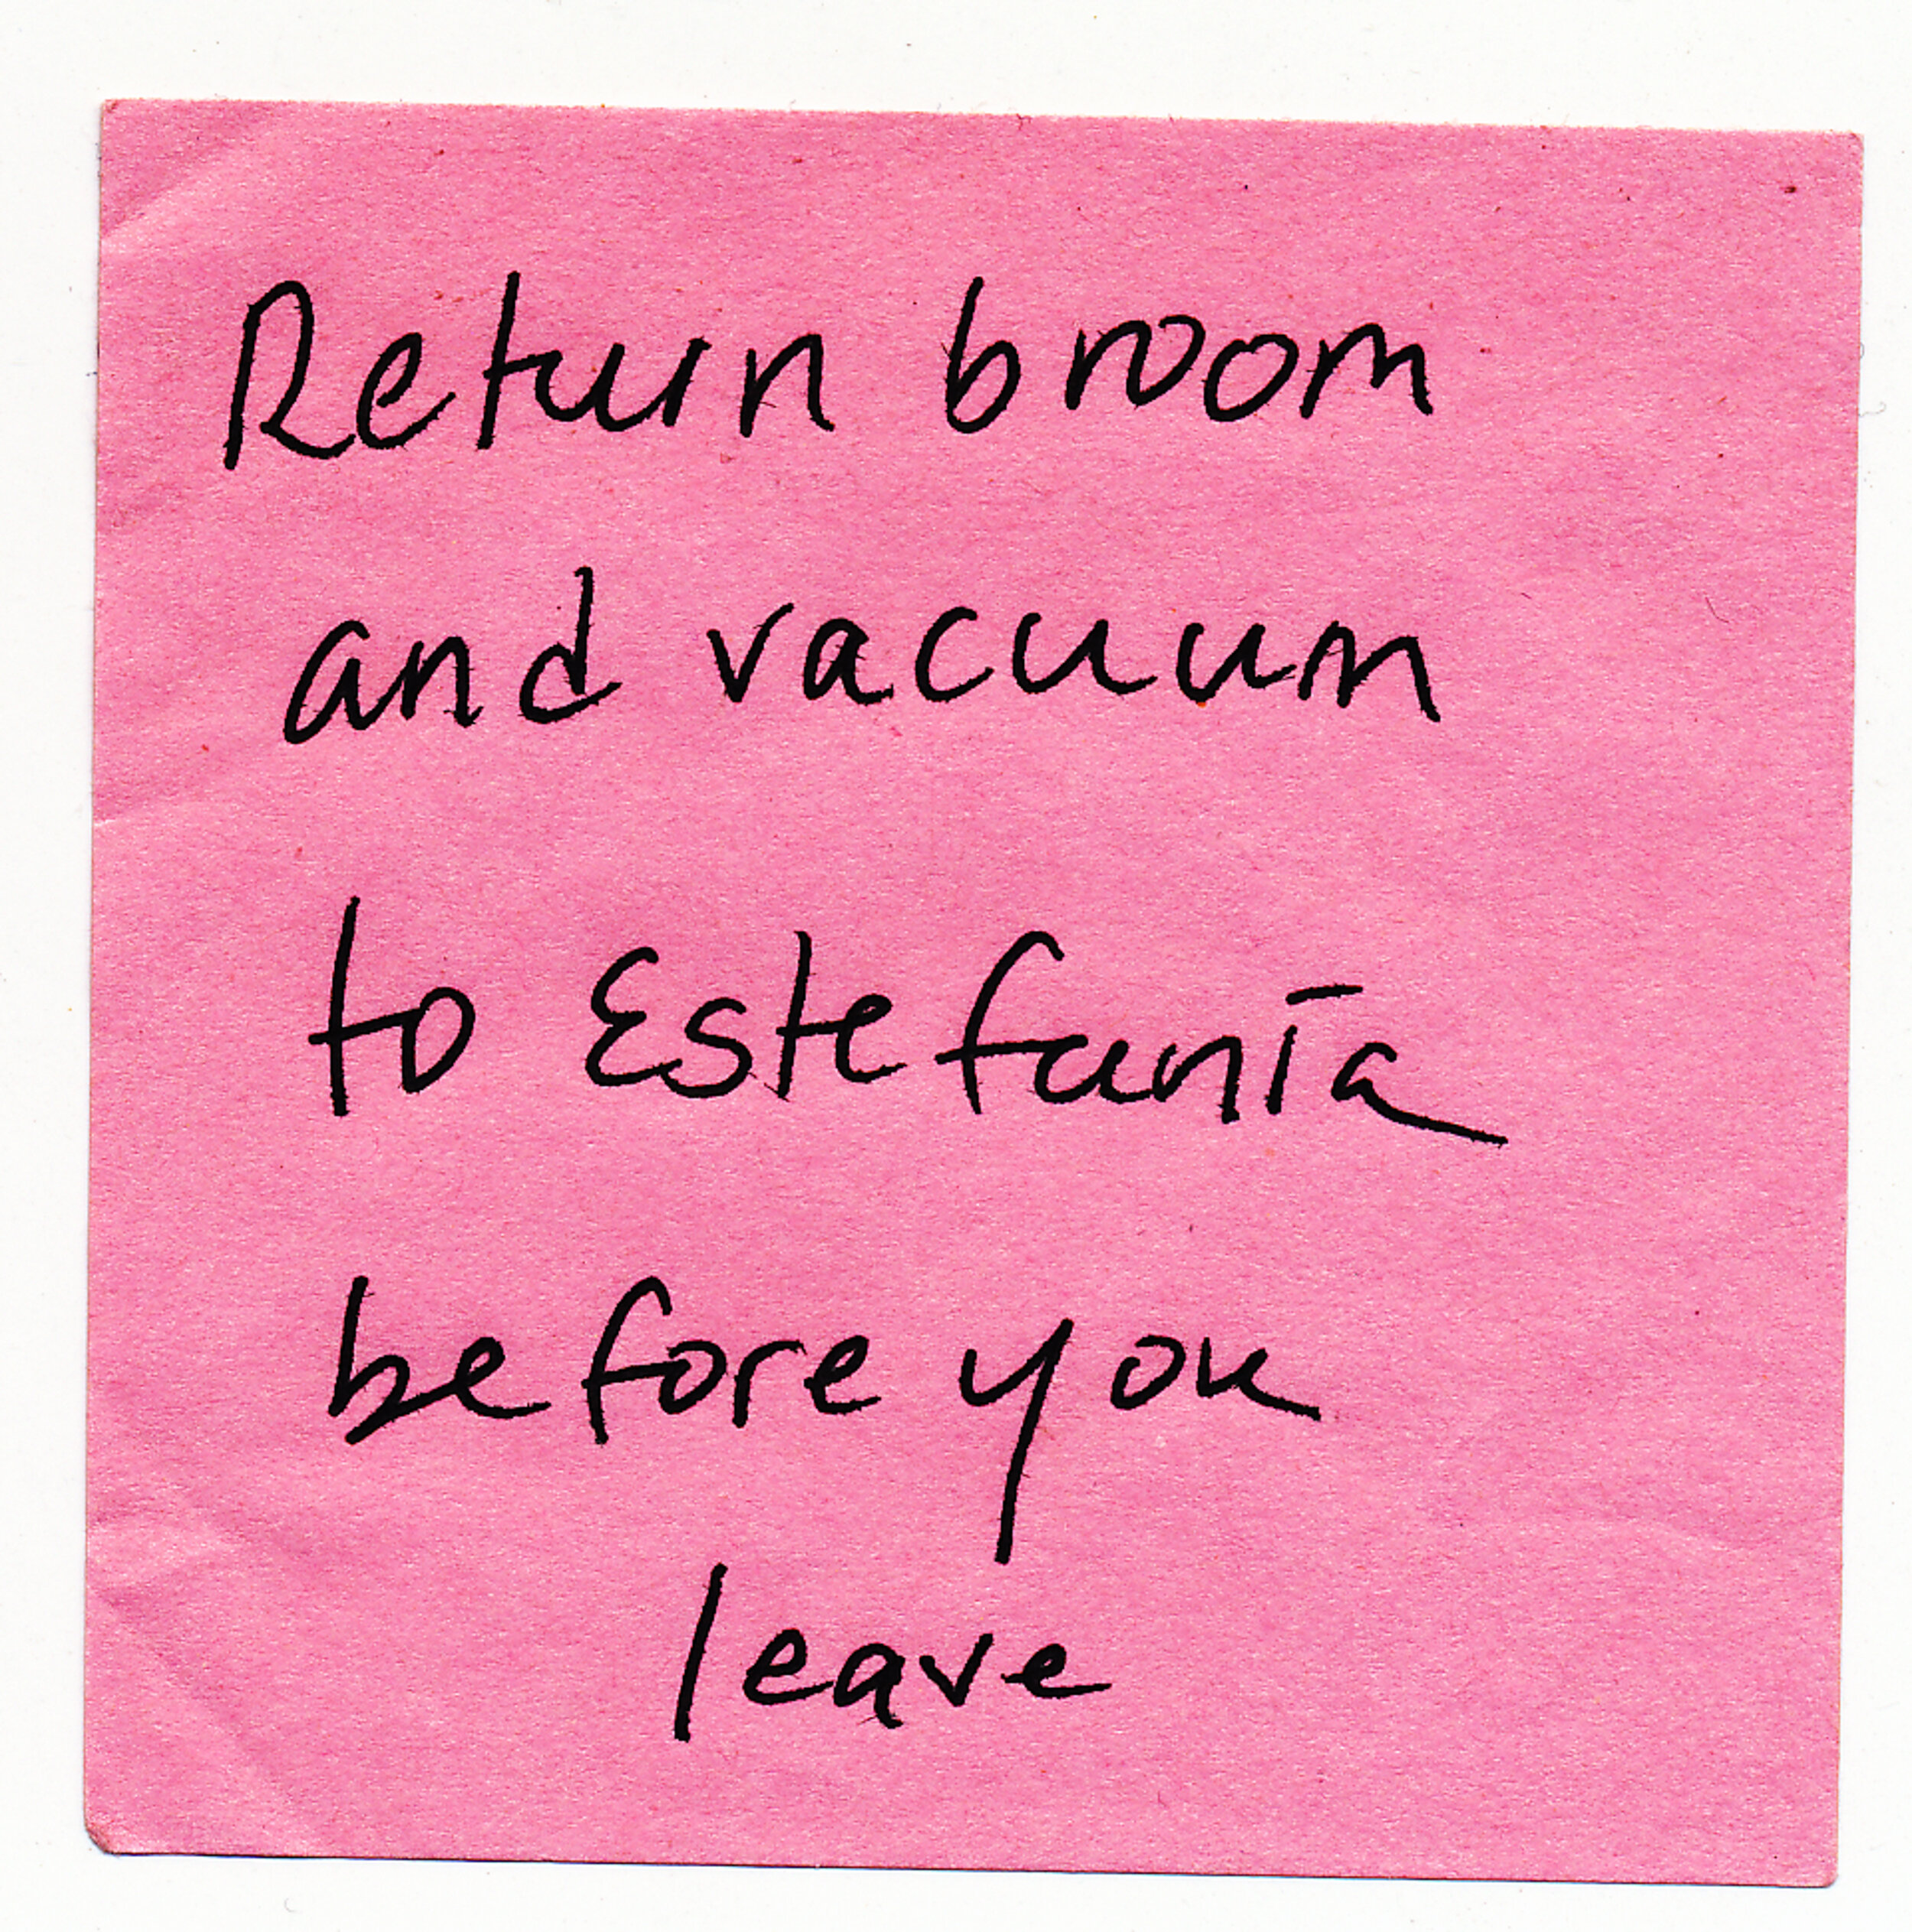 Return broom
and vacuum
to Estefanía
before you
leave